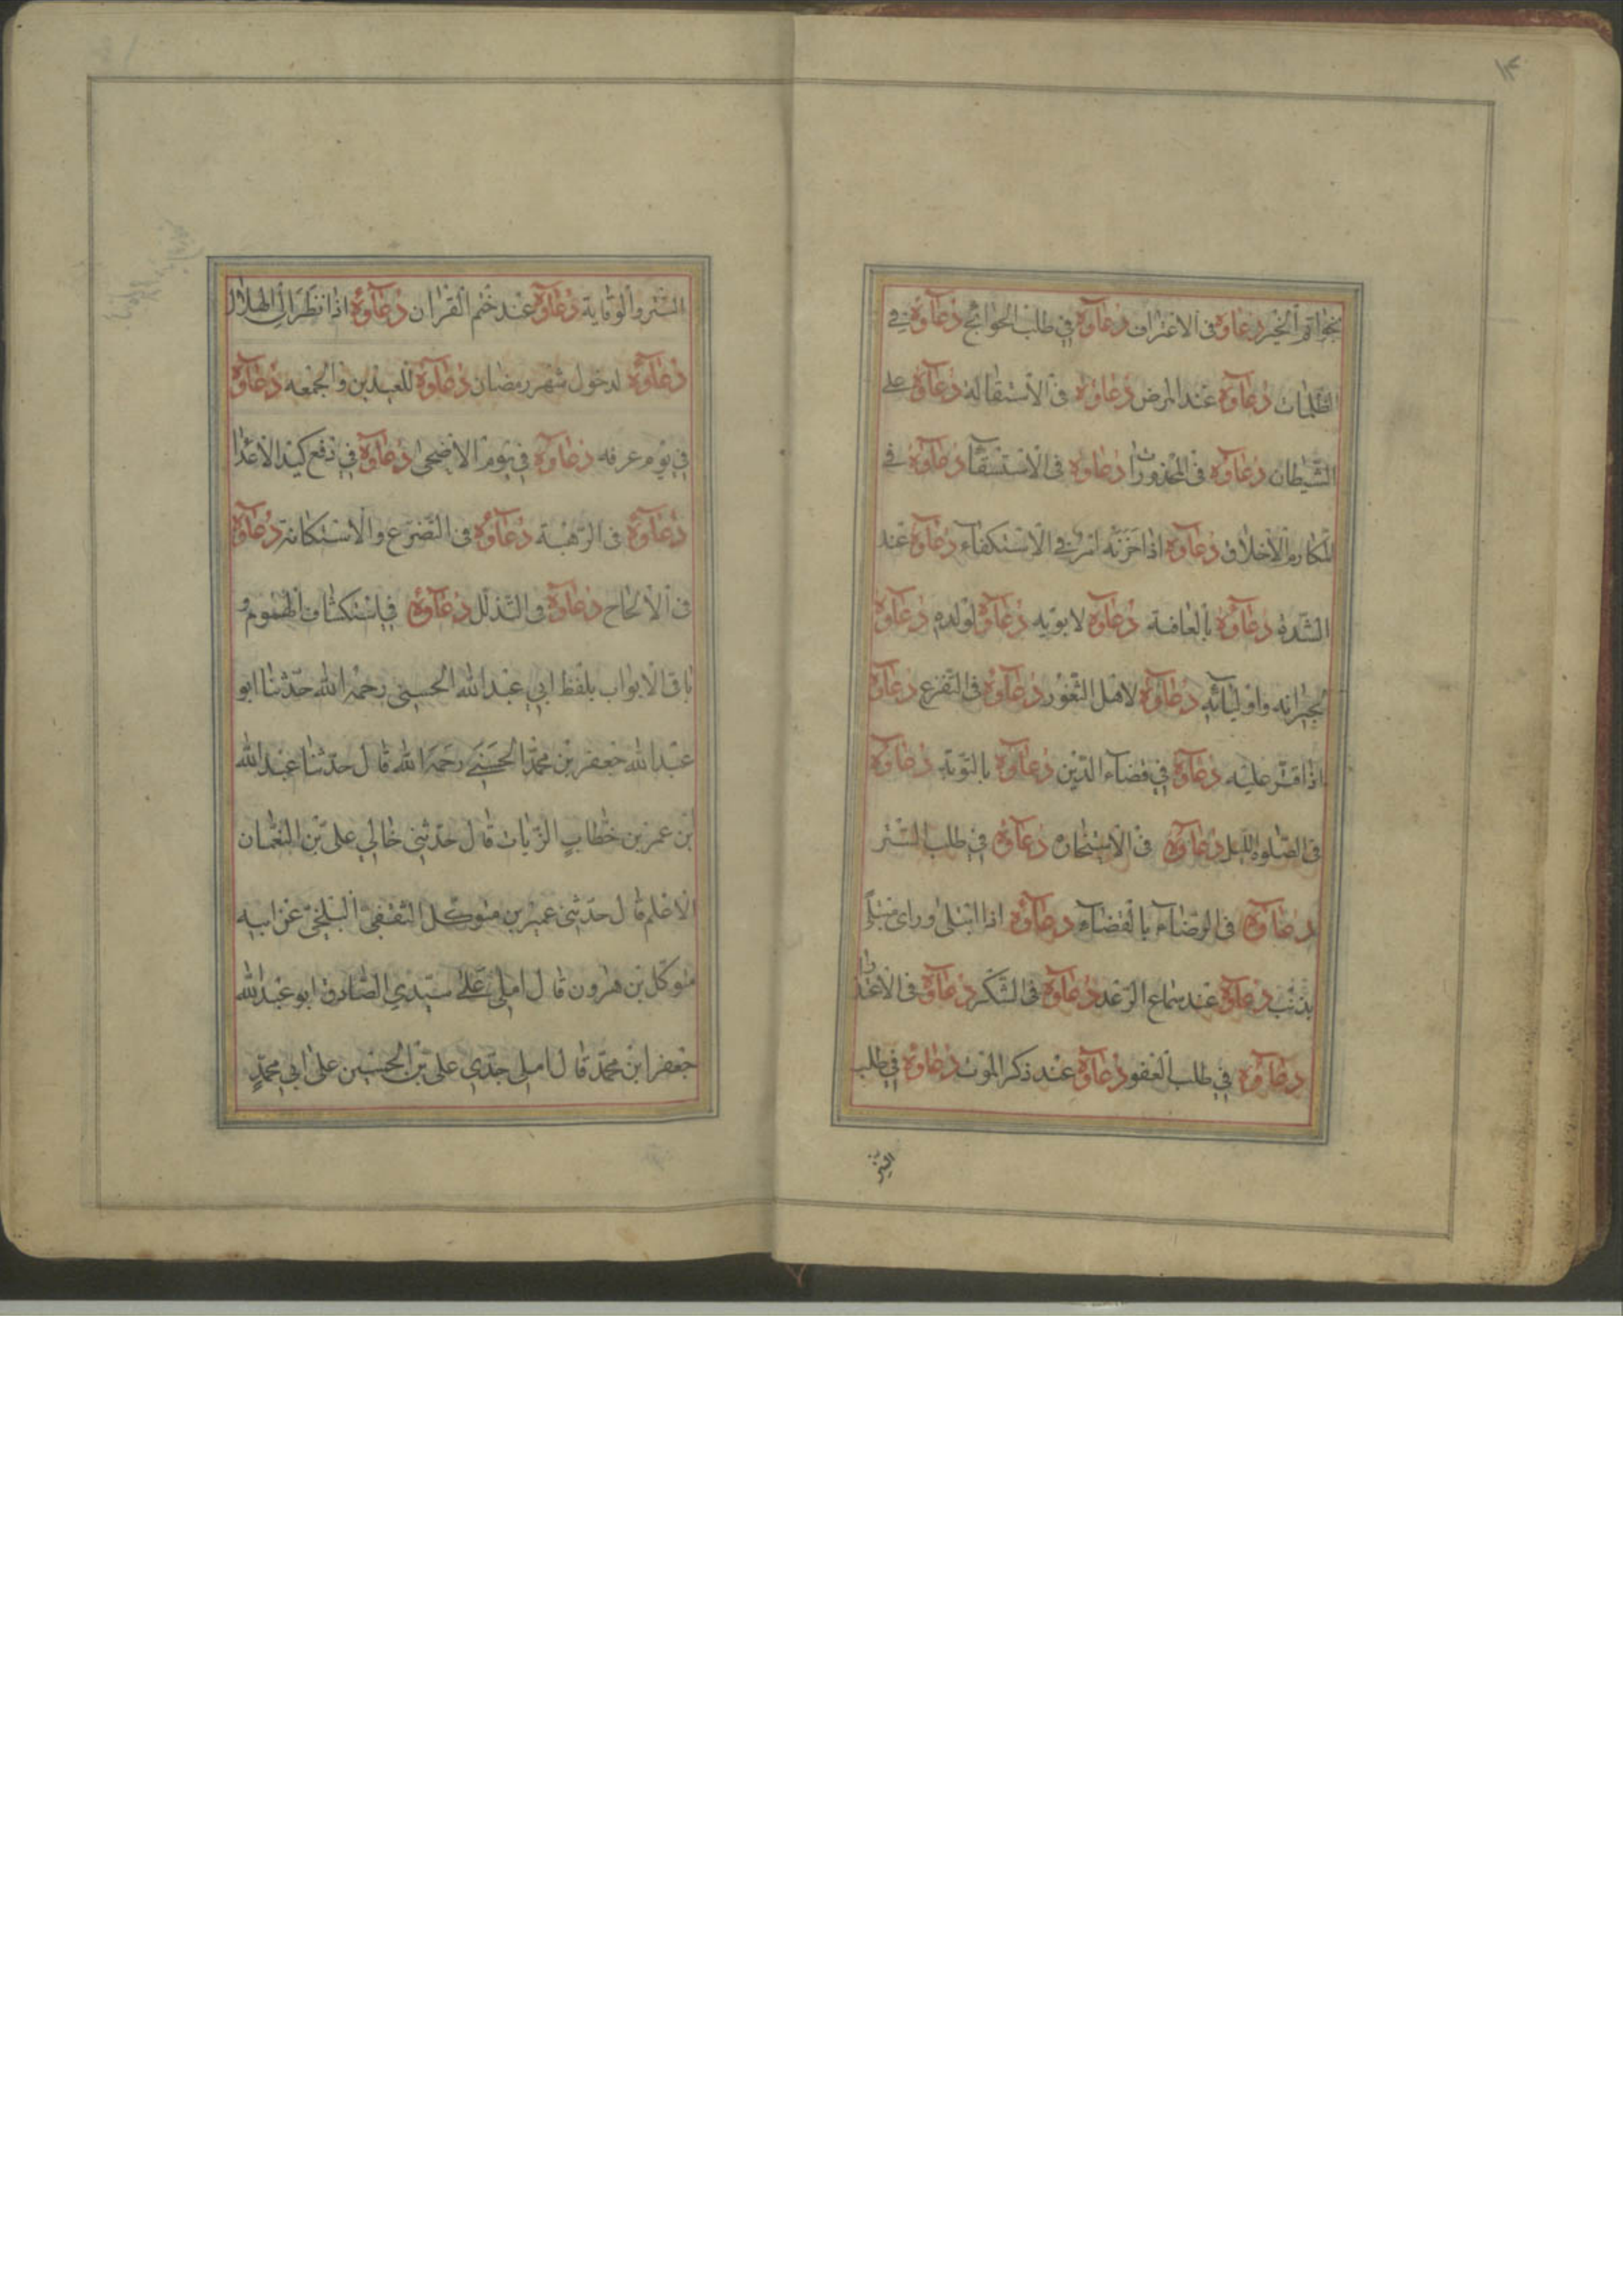 ١٣
بخواتم الخیر دعاؤه فی الاعتراف دعاؤه فی طلب الحوائج دعاؤه فی
الظلمات دعاؤه عند المرض دعاؤه فی الاستقاله دعاؤه علی
الشیطان دعاؤه فی المحذورات دعاؤه فی الاستسقآء دعاؤه فی
المکارم الاخلاق دعاؤه اذا حزنه امر فی الاستکفاء دعاؤه عند
الشدة دعاؤه بالعافیة دعاؤه لابویه دعاؤه لولده دعاؤه
لجیرانه واولیائه دعاؤه لاهل الثغور دعاؤه فی التفزع دعاؤه
اذا قتر علیه دعاؤه فی قضاء الدین دعاؤه بالتوبة دعاؤه
فی الصلوة اللیل دعاؤه فی الاستخاره دعاؤه فی طلب الستر
دعاؤه فی الرضاء بالقضاء دعاؤه اذا ابتلی او رای مبتلی
بذنب دعاؤه عند سماع الرعد دعاؤه فی الشکر دعاؤه فی الاعتذار
دعاؤه فی طلب العفو دعاؤه عند ذکر الموت دعاؤه فی طلب
الستر
الستر والوقایة دعاؤه عند ختم القران دعاؤه اذا نظر الی الهلال
دعاؤه لدخول شهر رمضان دعاؤه للعیدین والجمعه دعاؤه
فی یوم عرفه دعاؤه فی یوم الاضحی دعاؤه فی دفع کید الاعدا
دعاؤه فی الرهبة دعاؤه فی التضرع والاستکانة دعاؤه
فی الالحاح دعاؤه فی التذلل دعاؤه فی استکشاف الهموم و
باقی الابواب بلفظ ابی عبد الله الحسنی رحمه الله حدثنا ابو
عبد الله جعفر بن محمد الحسنی رحمه الله قال حدثنا عبد الله
ابن عمر بن خطاب الزیات قال حدثنی خالی علی بن النعمان
الاعلم قال حدثنی عمیر بن متوکل الثقفی البلخی عن ابیه
متوکل بن هرون قال املی علی سیدی الصادق ابو عبد الله
جعفر ابن محمد قال املی جدی علی بن الحسین علی ابی محمد